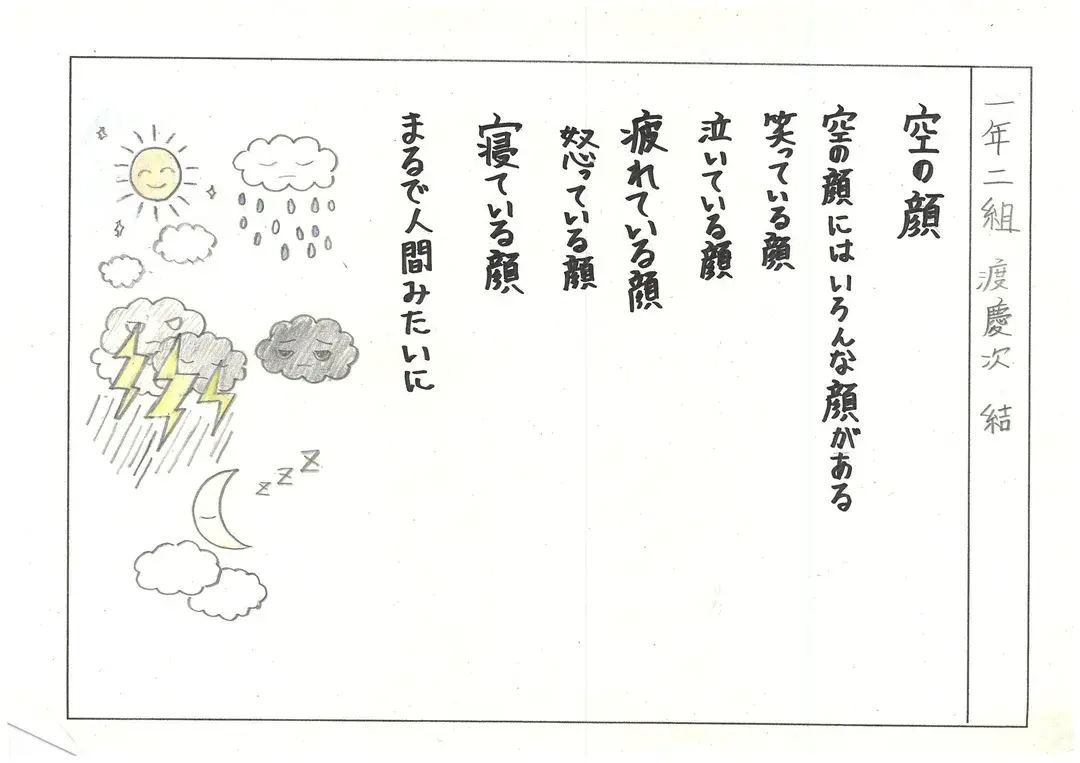 一年二組 渡慶次 結
空の顔
空の顔にはいろんな顔がある
笑っている顔
泣いている顔
疲れている顔
怒っている顔
寝ている顔
まるで人間みたいに
z z z